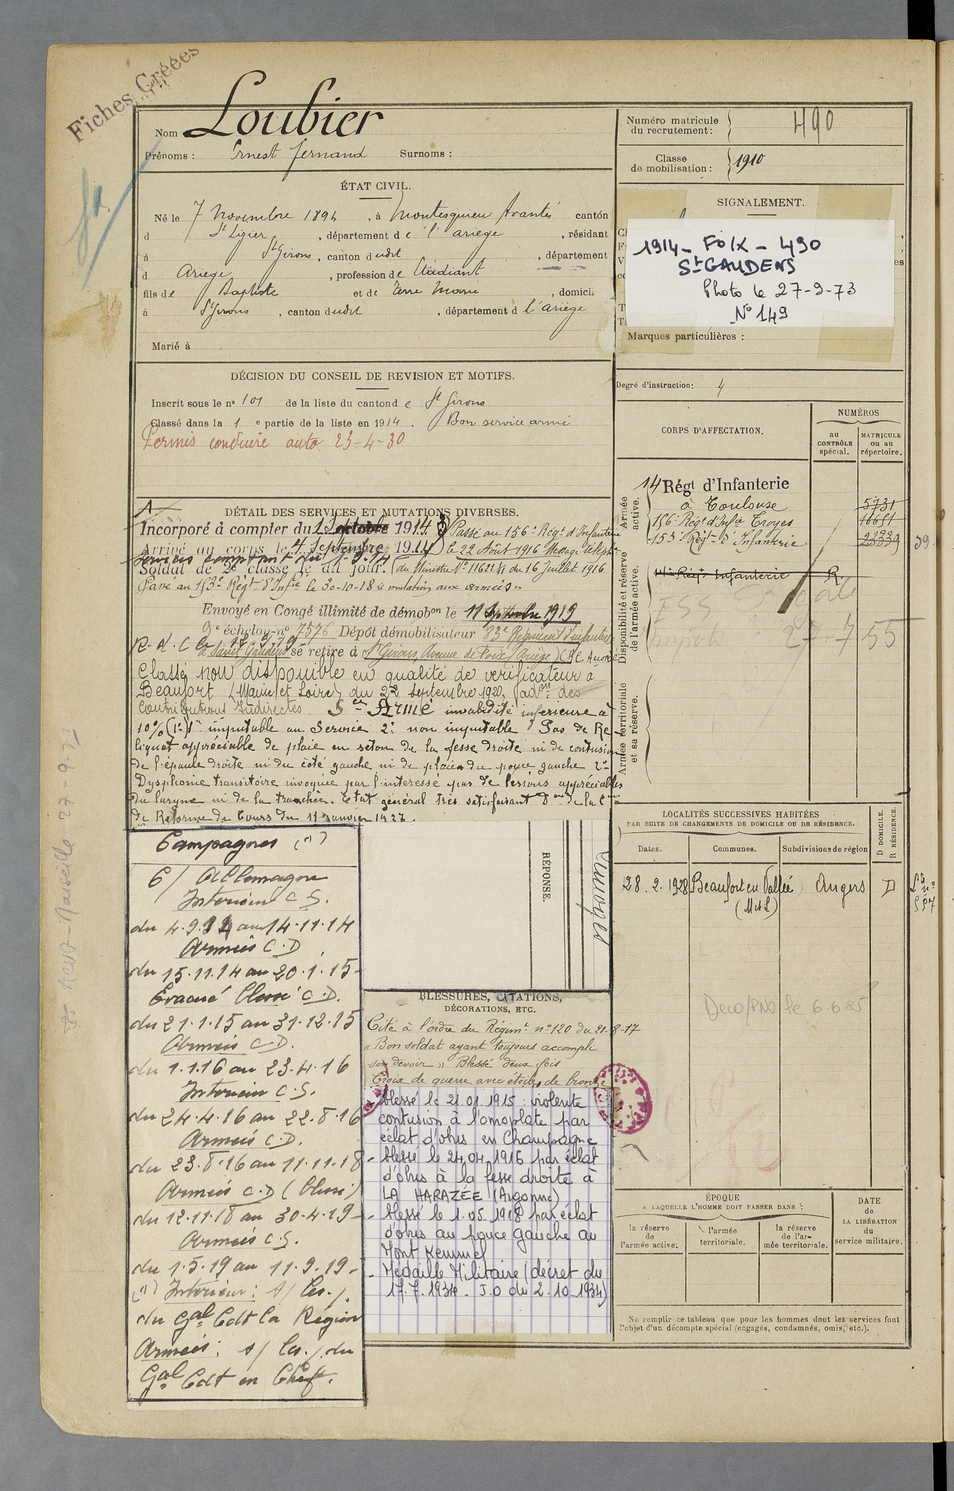 Fiches Créées
Nom Loubier
Prénoms : Ernest Fernand Surnoms :
Numéro matricule du recrutement : 490
Classe de mobilisation : 1910
ÉTAT CIVIL.
Né le 7 Novembre 1894, à Montesquieu Avantès canton
d St Lizier, département de l'Ariège, résidant
à St Girons, canton dudit, département
d Ariège, profession de Etudiant
fils de Baptiste et de Terre Marie, domici.
à St Girons, canton dudit, département d l'Ariège
Marié à
SIGNALEMENT.
1914 - FOIX - 490
St GAUDENS
Photo le 27-9-73
N° 149
Marques particulières :
Degré d'instruction : 4
DÉCISION DU CONSEIL DE REVISION ET MOTIFS.
Inscrit sous le n° 101 de la liste du canton de St Girons
Classé dans la 1e partie de la liste en 1914. Bon service armé
Permis conduire auto 23-4-30
CORPS D'AFFECTATION.
NUMÉROS
au CONTRÔLE spécial.
MATRICULE ou au répertoire.
Armée active.
14 Régt d'Infanterie
à Toulouse 5731
156e Régt d'Infie Troyes 16611
153e Régt d'Infanterie
Disponibilité et réserve de l'armée active.
Régt Infanterie R.
27.7 55
Armée territoriale et sa réserve.
DÉTAIL DES SERVICES ET MUTATIONS DIVERSES.
Incorporé à compter du 1914
Passé au 156e Régt d'Infanterie
Arrivé au corps le 4 Septembre 1914
le 22 Août 1916
Soldat de 2e classe le dit jour.
du 16 Juillet 1916
Passé au 153e Régt d'Infie le 30-10-18 « mutation aux armées »
Envoyé en Congé illimité de démobon le 11 Septembre 1919
9e échelon n° 7576 Dépôt démobilisateur 83e Régiment d'infanterie
se retire à St Girons, Avenue de Foix (Ariège)
Classé non disponible en qualité de vérificateur à
Beaufort (Maine et Loire) du 22 Septembre 1920 (adon des
Contributions Indirectes Sce Armé invalidité inférieure à
10% (1° imputable au Service 2° non imputable Pas de Re
liquat appréciable de plaie en seton de la fesse droite ni de contusion
de l'épaule droite ni du côté gauche ni de plaie du pouce gauche 2°
Dysphonie transitoire invoquée par l'intéressé pas de lésions appréciables
du larynx ni de la trachée. Etat général très satisfaisant
de Réforme de Tours du 11 Janvier 1927.
Campagnes (1)
C/ Allemagne
Intérieur C.S.
du 4.9.14 au 14.11.14
Armées C.D.
du 15.11.14 au 20.1.15
Evacué blessé C.D.
du 21.1.15 au 31.12.15
Armées C.D.
du 1.1.16 au 23.4.16
Intérieur C.S.
du 24.4.16 au 22.8.16
Armées C.D.
du 23.8.16 au 11.11.18
Armées C.D (blessé)
du 12.11.18 au 30.4.19
Armées C.S.
du 1.5.19 au 11.9.19
(1) Intérieur : s/ les.
du Gal Cdt la Région
Armées : s/ les. du
Gal Cdt en Chef.
RÉPONSE.
BLESSURES, CITATIONS, DÉCORATIONS, ETC.
Cité à l'ordre du Régimt n° 120 du 21-8-17
« Bon soldat ayant toujours accompli
son devoir » Blessé deux fois
Croix de guerre avec étoile de bronze
blessé le 21.01.1915 : violente
contusion à l'omoplate par
éclat d'obus en Champagne
- blessé le 24.04.1916 par éclat
d'obus à la fesse droite à
LA HARAZÉE (Argonne)
- blessé le 1.05.1918 par éclat
d'obus au pouce gauche au
Mont Kemmel
- Médaille Militaire (décret du
17.7.1934. J.O du 2.10.1934)
LOCALITÉS SUCCESSIVES HABITÉES
PAR SUITE DE CHANGEMENTS DE DOMICILE OU DE RÉSIDENCE.
Dates. Communes. Subdivisions de région D DOMICILE. R RÉSIDENCE.
28.2.1928 Beaufort en Vallée (M et L) Angers D
ÉPOQUE
A LAQUELLE L'HOMME DOIT PASSER DANS :
la réserve de l'armée active.
l'armée territoriale.
la réserve de l'armée territoriale.
DATE DE LA LIBÉRATION du service militaire.
Ne remplir ce tableau que pour les hommes dont les services font
l'objet d'un décompte spécial (engagés, condamnés, omis, etc.).